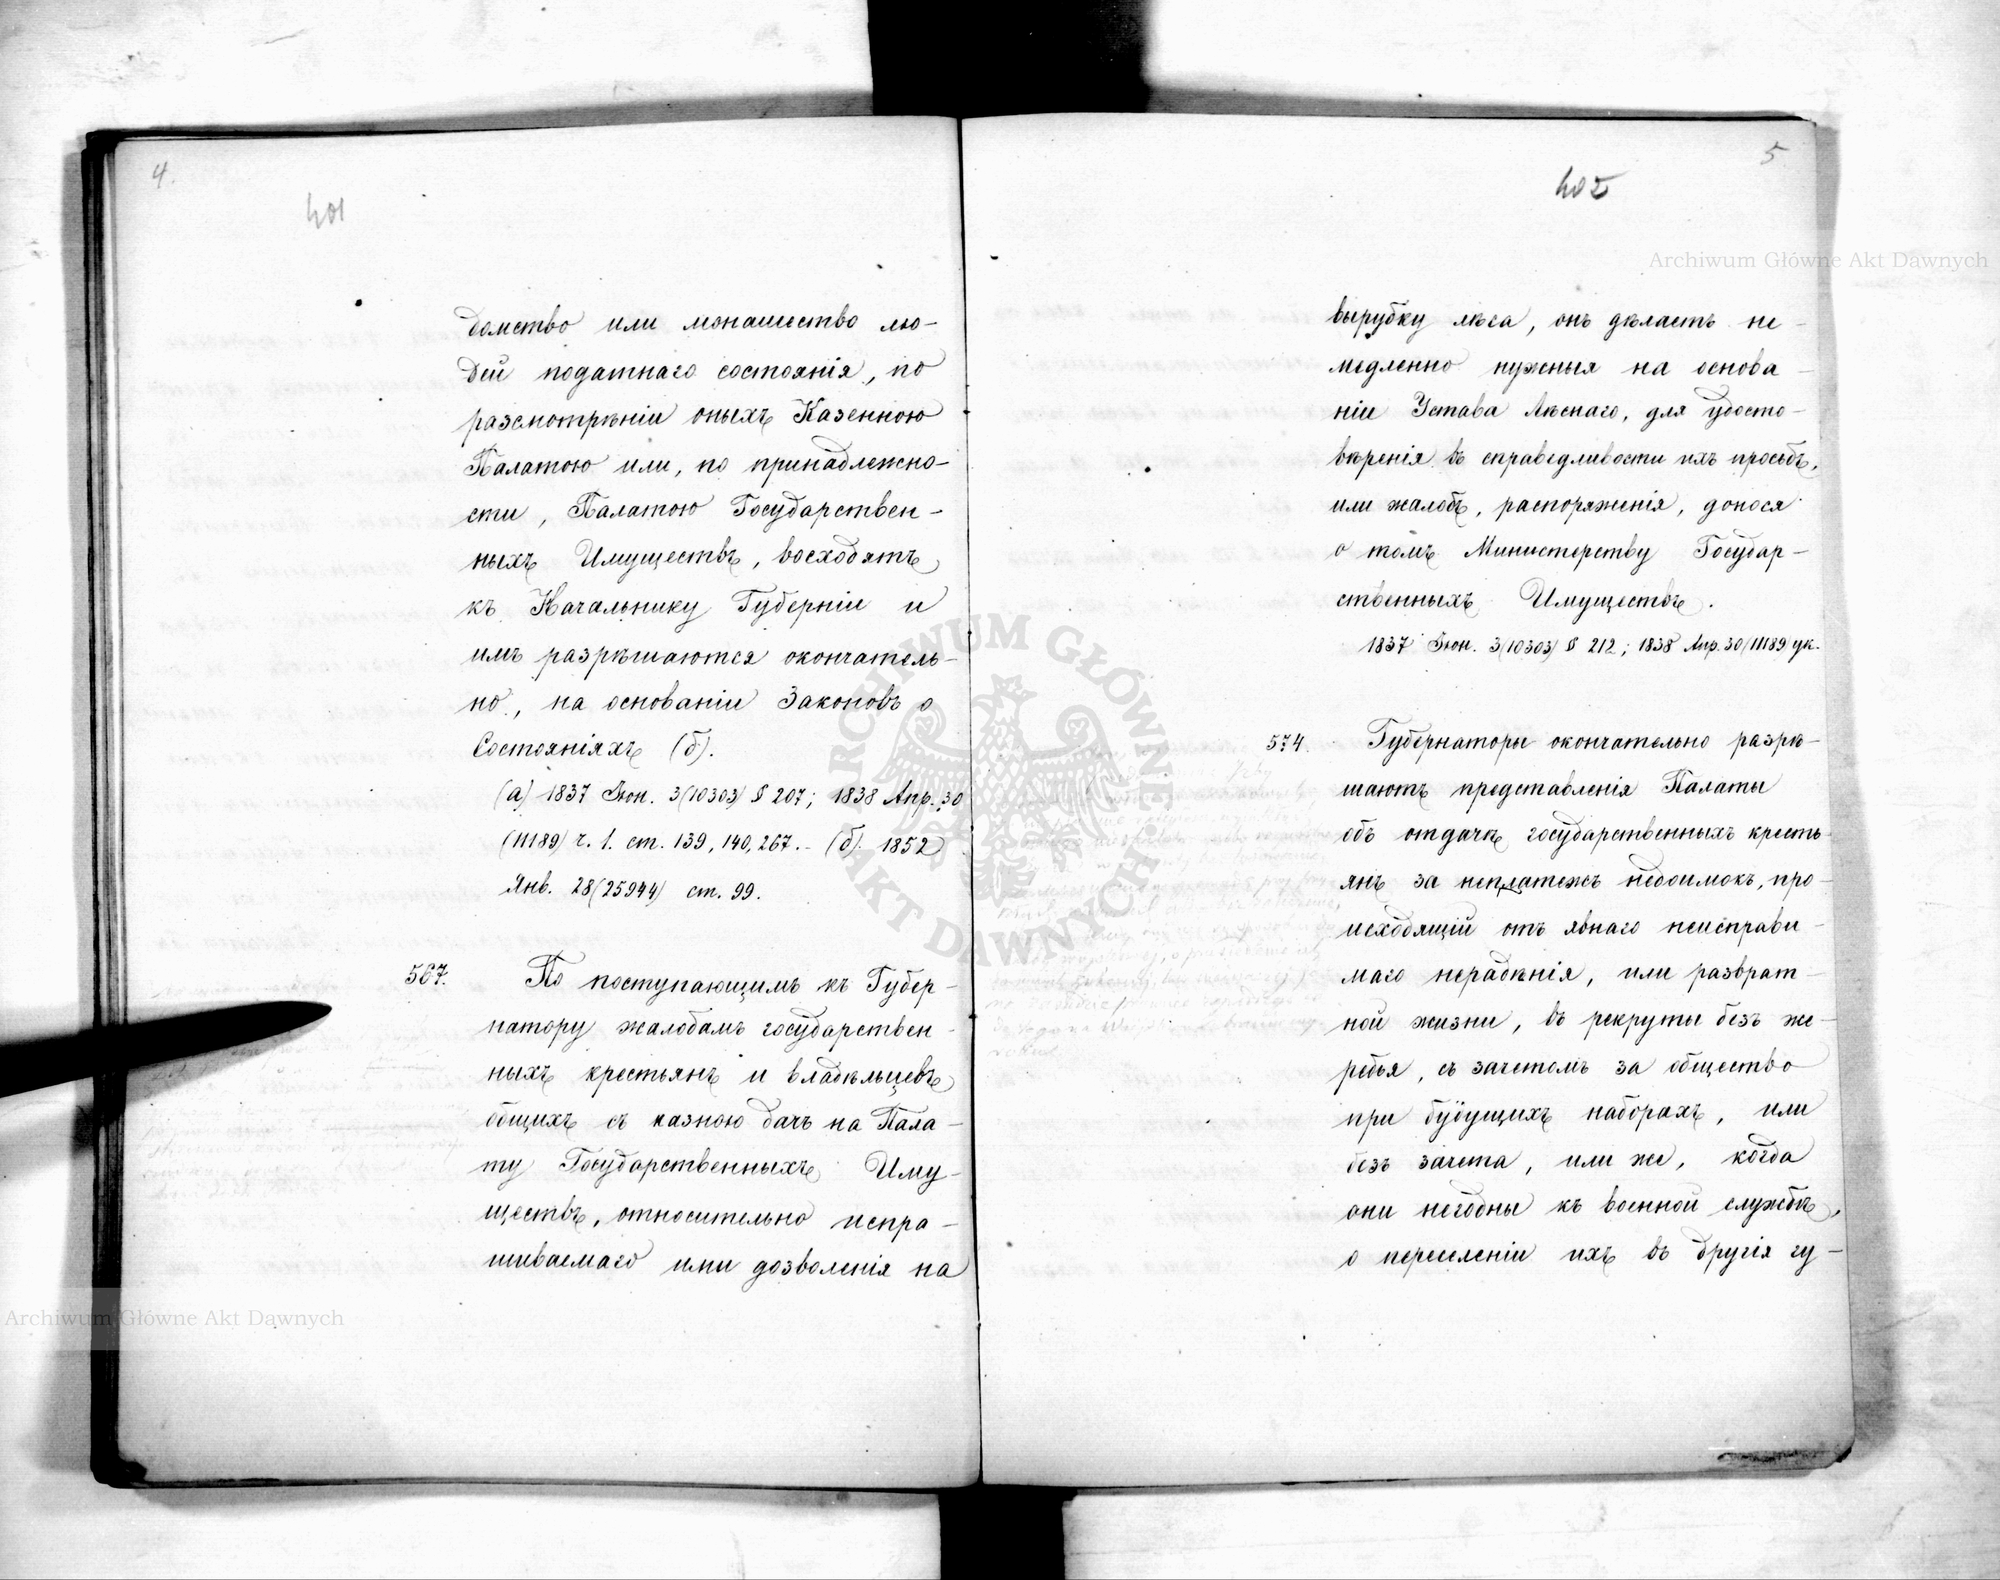 4.
401
домство или монашество лю-
дей податнаго состоянія, по
разсмотрѣніи оныхъ Казенною
Палатою или, по принадлежно-
сти, Палатою Государствен-
ныхъ Имуществъ, восходятъ
къ Начальнику Губерніи и
имъ разрѣшаются окончатель-
но, на основаніи Законовъ о
Состояніяхъ (б).
(а) 1837 Іюн. 3(10303) § 207; 1838 Апр. 30
(11189) ч. 1. ст. 139, 140, 267. - (б). 1852
Янв. 28(25944) ст. 99.
567. По поступающимъ къ Губер-
натору жалобамъ государствен-
ныхъ крестьянъ и владѣльцевъ
общихъ съ казною дачъ на Пала-
ту Государственныхъ Иму-
ществъ, относительно испра-
шиваемаго ими дозволенія на
5
402
вырубку лѣса, онъ дѣлаетъ не-
медленно нужныя на основа-
ніи Устава Лѣснаго, для удосто-
вѣренія въ справедливости ихъ просьбъ,
или жалобъ, распоряженія, донося
о томъ Министерству Государ-
ственныхъ Имуществъ.
1837 Іюн. 3(10303) § 212; 1838 Апр. 30(11189) ук.
574. Губернаторы окончательно разрѣ-
шаютъ представленія Палаты
объ отдачѣ государственныхъ кресть-
янъ за неплатежъ недоимокъ, про-
исходящій отъ явнаго неисправи-
маго нерадѣнія, или разврат-
ной жизни, въ рекруты безъ же-
ребья, съ зачетомъ за общество
при будущихъ наборахъ, или
безъ зачета, или же, когда
они негодны къ военной службѣ,
о переселеніи ихъ въ другія гу-
Archiwum Główne Akt Dawnych
ARCHIWUM GŁÓWNE AKT DAWNYCH
Archiwum Główne Akt Dawnych